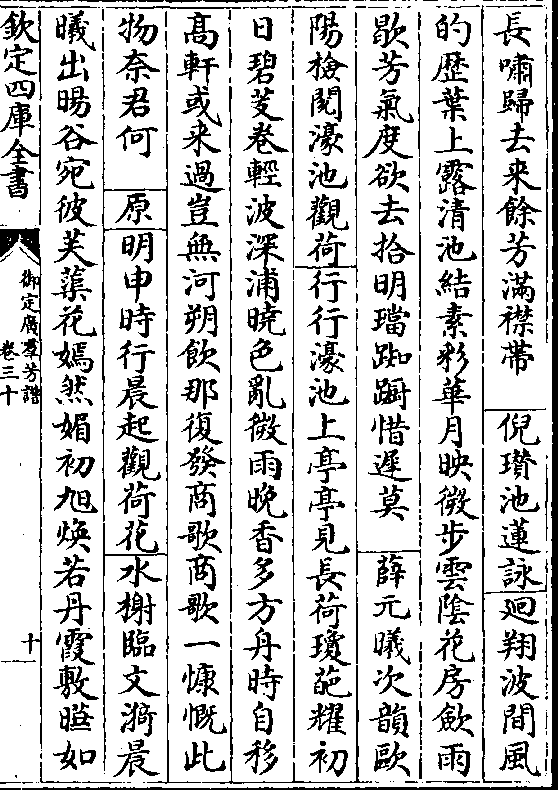 長嘯歸去来餘芳滿襟帶 倪瓚池蓮詠迴翔波間風
的歴葉上露清池結素彩華月映微步雲陰花房歛雨
歇芳氣度欲去拾明璫踟蹰惜遲莫 薛元曦次韻歐
陽檢閱濠池觀荷行行濠池上亭亭見長荷瓊葩耀初
日碧芰卷輕波深浦曉色亂微雨晚香多方舟時自移
髙軒或来過豈無河朔飲那復發商歌商歌一慷慨此
物奈君何 原明申時行晨起觀荷花水榭臨文漪晨
曦出暘谷宛彼芙蕖花嫣然媚初旭煥若丹霞敷㬢如
欽定四庫全書
御定廣羣芳譜
卷三十
十